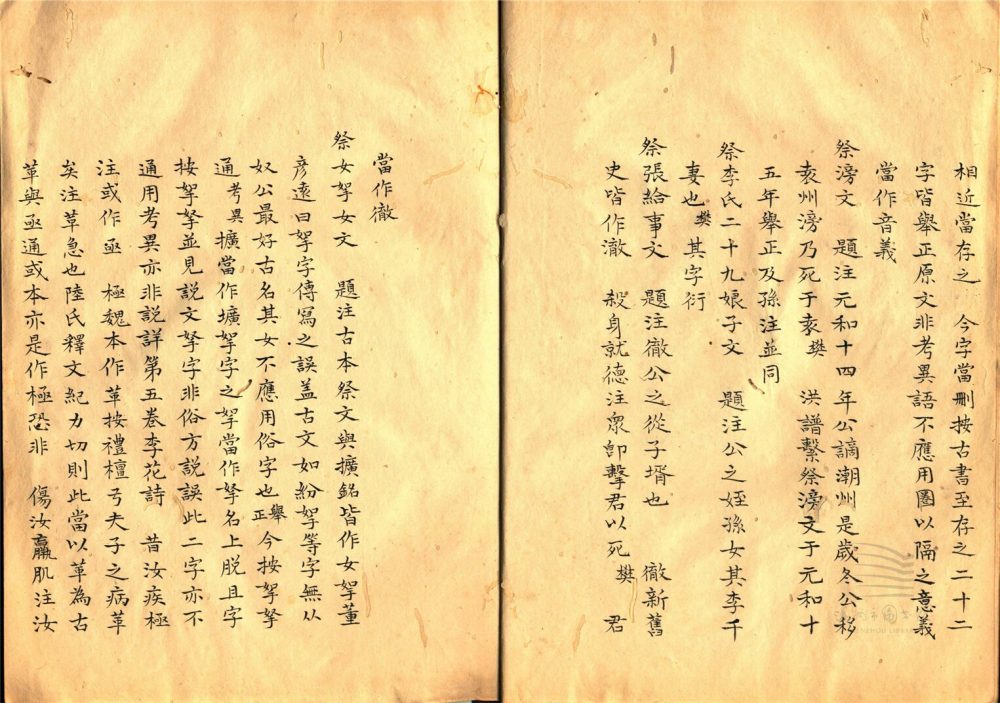 相近當存之　今字當刪按古書至存之二十二
字皆舉正原文非考異語不應用圈以隔之意義
當作音義
祭滂文　題注元和十四年公謫潮州是歲冬公移
袁州滂乃死于袁樊　洪譜繫祭滂文于元和十
五年舉正及孫注並同
祭李氏二十九娘子文　題注公之姪孫女其李千
妻也樊　其字衍
祭張給事文　題注徹公之從子壻也　徹新舊
史皆作澈　殺身就德注衆卽擊君以死樊　君
當作徹
祭女挐女文　題注古本祭文與擴銘皆作女挐董
彥遠曰挐字傳寫之誤盖古文如紛挐等字無从
奴公最好古名其女不應用俗字也舉正　今按挐拏
通考異　擴當作壙挐字之挐當作拏名上脱且字
按挐拏並見説文拏字非俗方説誤此二字亦不
通用考異亦非説詳第五卷李花詩　昔汝疾極
注或作亟　極魏本作革按禮檀弓夫子之病革
矣注革急也陸氏釋文紀力切則此當以革為古
革與亟通或本亦是作極恐非　傷汝羸肌注汝